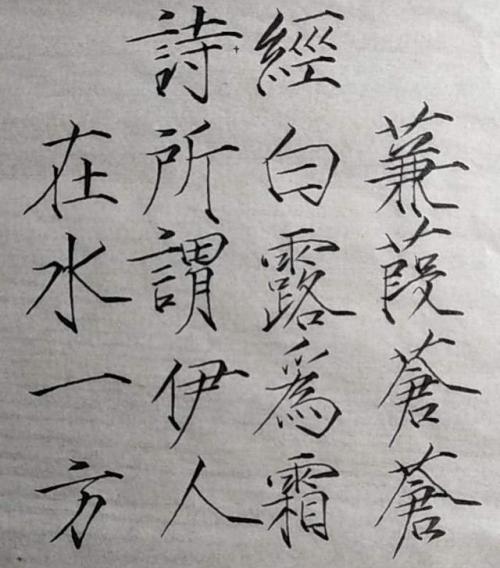 詩經
蒹葭蒼蒼
白露爲霜
所謂伊人
在水一方